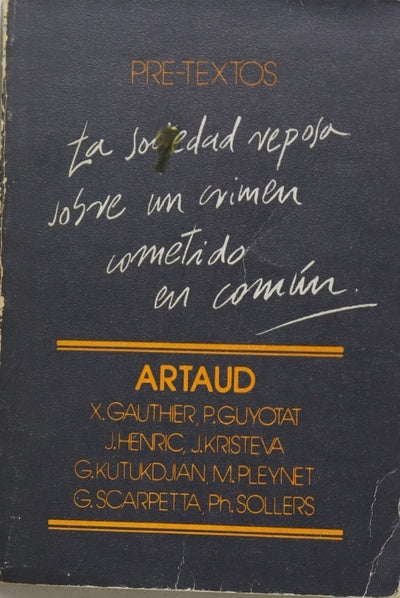 PRE-TEXTOS
La sociedad reposa
sobre un crimen
cometido
en común.
ARTAUD
X. GAUTHIER, P. GUYOTAT
J. HENRIC, J. KRISTEVA
G. KUTUKDJIAN, M. PLEYNET
G. SCARPETTA, Ph. SOLLERS